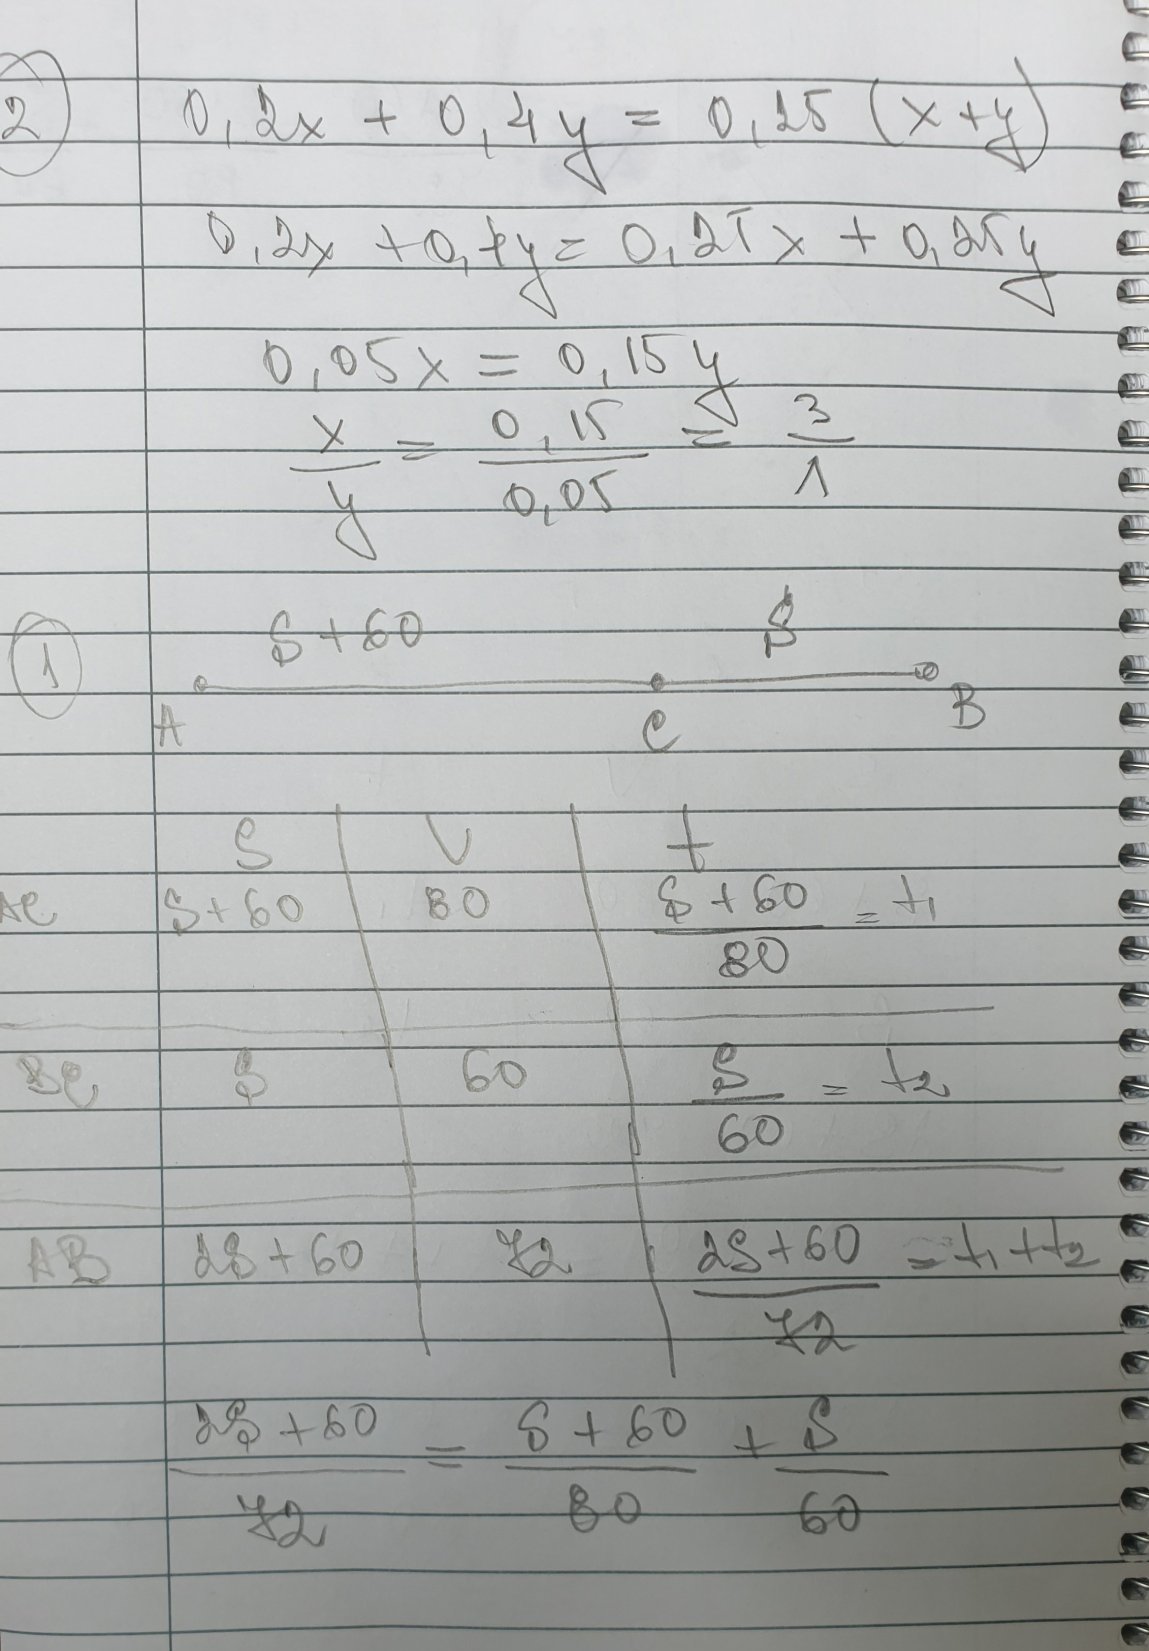 2 0,2x + 0,4y = 0,25 (x+y)
0,2x + 0,4y = 0,25x + 0,25y
0,05x = 0,15y
x/y = 0,15/0,05 = 3/1
1 S+60 S
A C B
S V t
AC S+60 80 S+60/80 = t₁
BC S 60 S/60 = t₂
AB 2S+60 72 2S+60/72 = t₁+t₂
2S+60/72 = S+60/80 + S/60